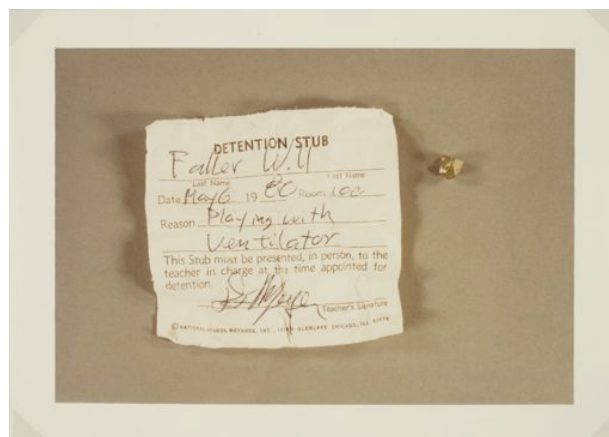 DETENTION STUB
Faller Will
Last Name First Name
Date May 6 19 80 Room 100
Reason Playing with
Ventilator
This Stub must be presented, in person, to the
teacher in charge at the time appointed for
detention.
Teacher's Signature
© NATIONAL SCHOOL METHODS, INC., GLENLAKE, CHICAGO, ILL.